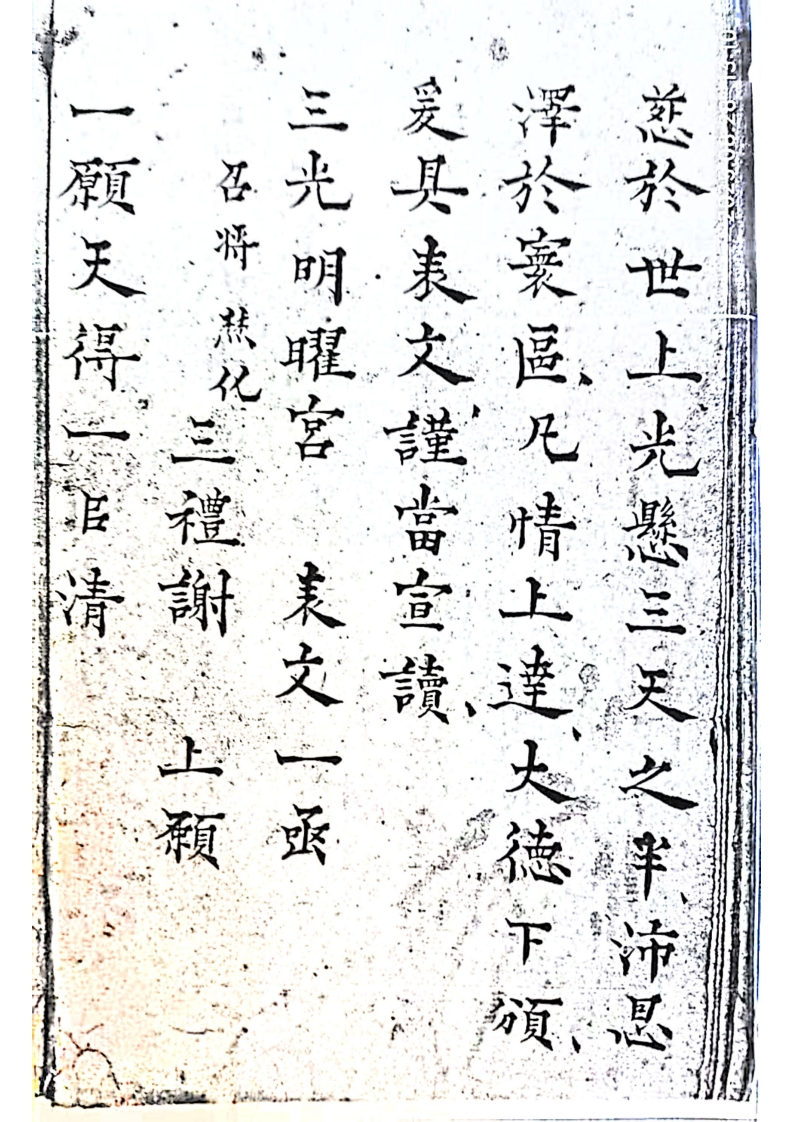 慈於世上光懸三天之半、沛恩
澤於寰區、凡情上達、大德下頒、
爰具表文、謹當宣讀、
三光明曜宮　表文一函
召将　焚化
三禮謝　上願
一願天得一臣清